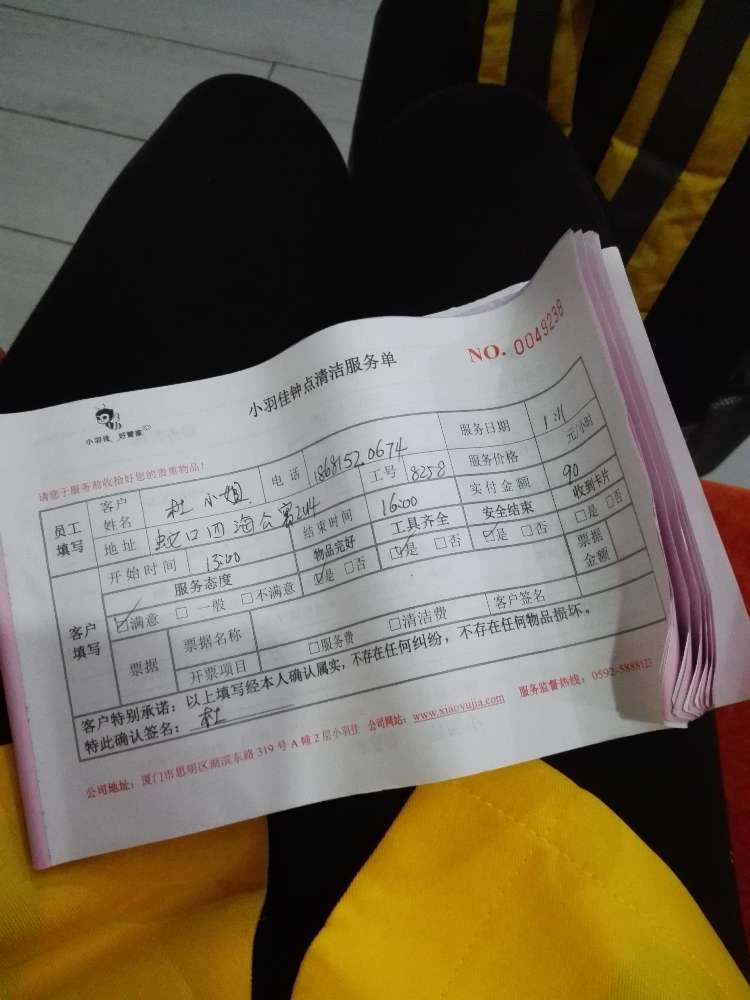 小羽佳 好管家
小羽佳钟点清洁服务单
NO. 0049238
请您于服务前收拾好您的贵重物品!
员工填写 客户姓名 杜小姐 电话 18681520674 服务日期 1.11
地址 蛇口四海公寓 工号 8258 服务价格 元/小时
开始时间 13:00 结束时间 16:00 实付金额 90
客户填写 服务态度 物品完好 工具齐全 安全结束 收到卡片
☑满意 □一般 □不满意 ☑是 □否 ☑是 □否 ☑是 □否 □是 □否
票据 票据名称 票据金额
开票项目 □服务费 □清洁费 客户签名
客户特别承诺:以上填写经本人确认属实,不存在任何纠纷,不存在任何物品损坏。
特此确认签名:杜
公司地址:厦门市思明区湖滨东路 319 号 A 幢 2 层小羽佳 公司网站:www.xiaoyujia.com 服务监督热线:0592-5888123